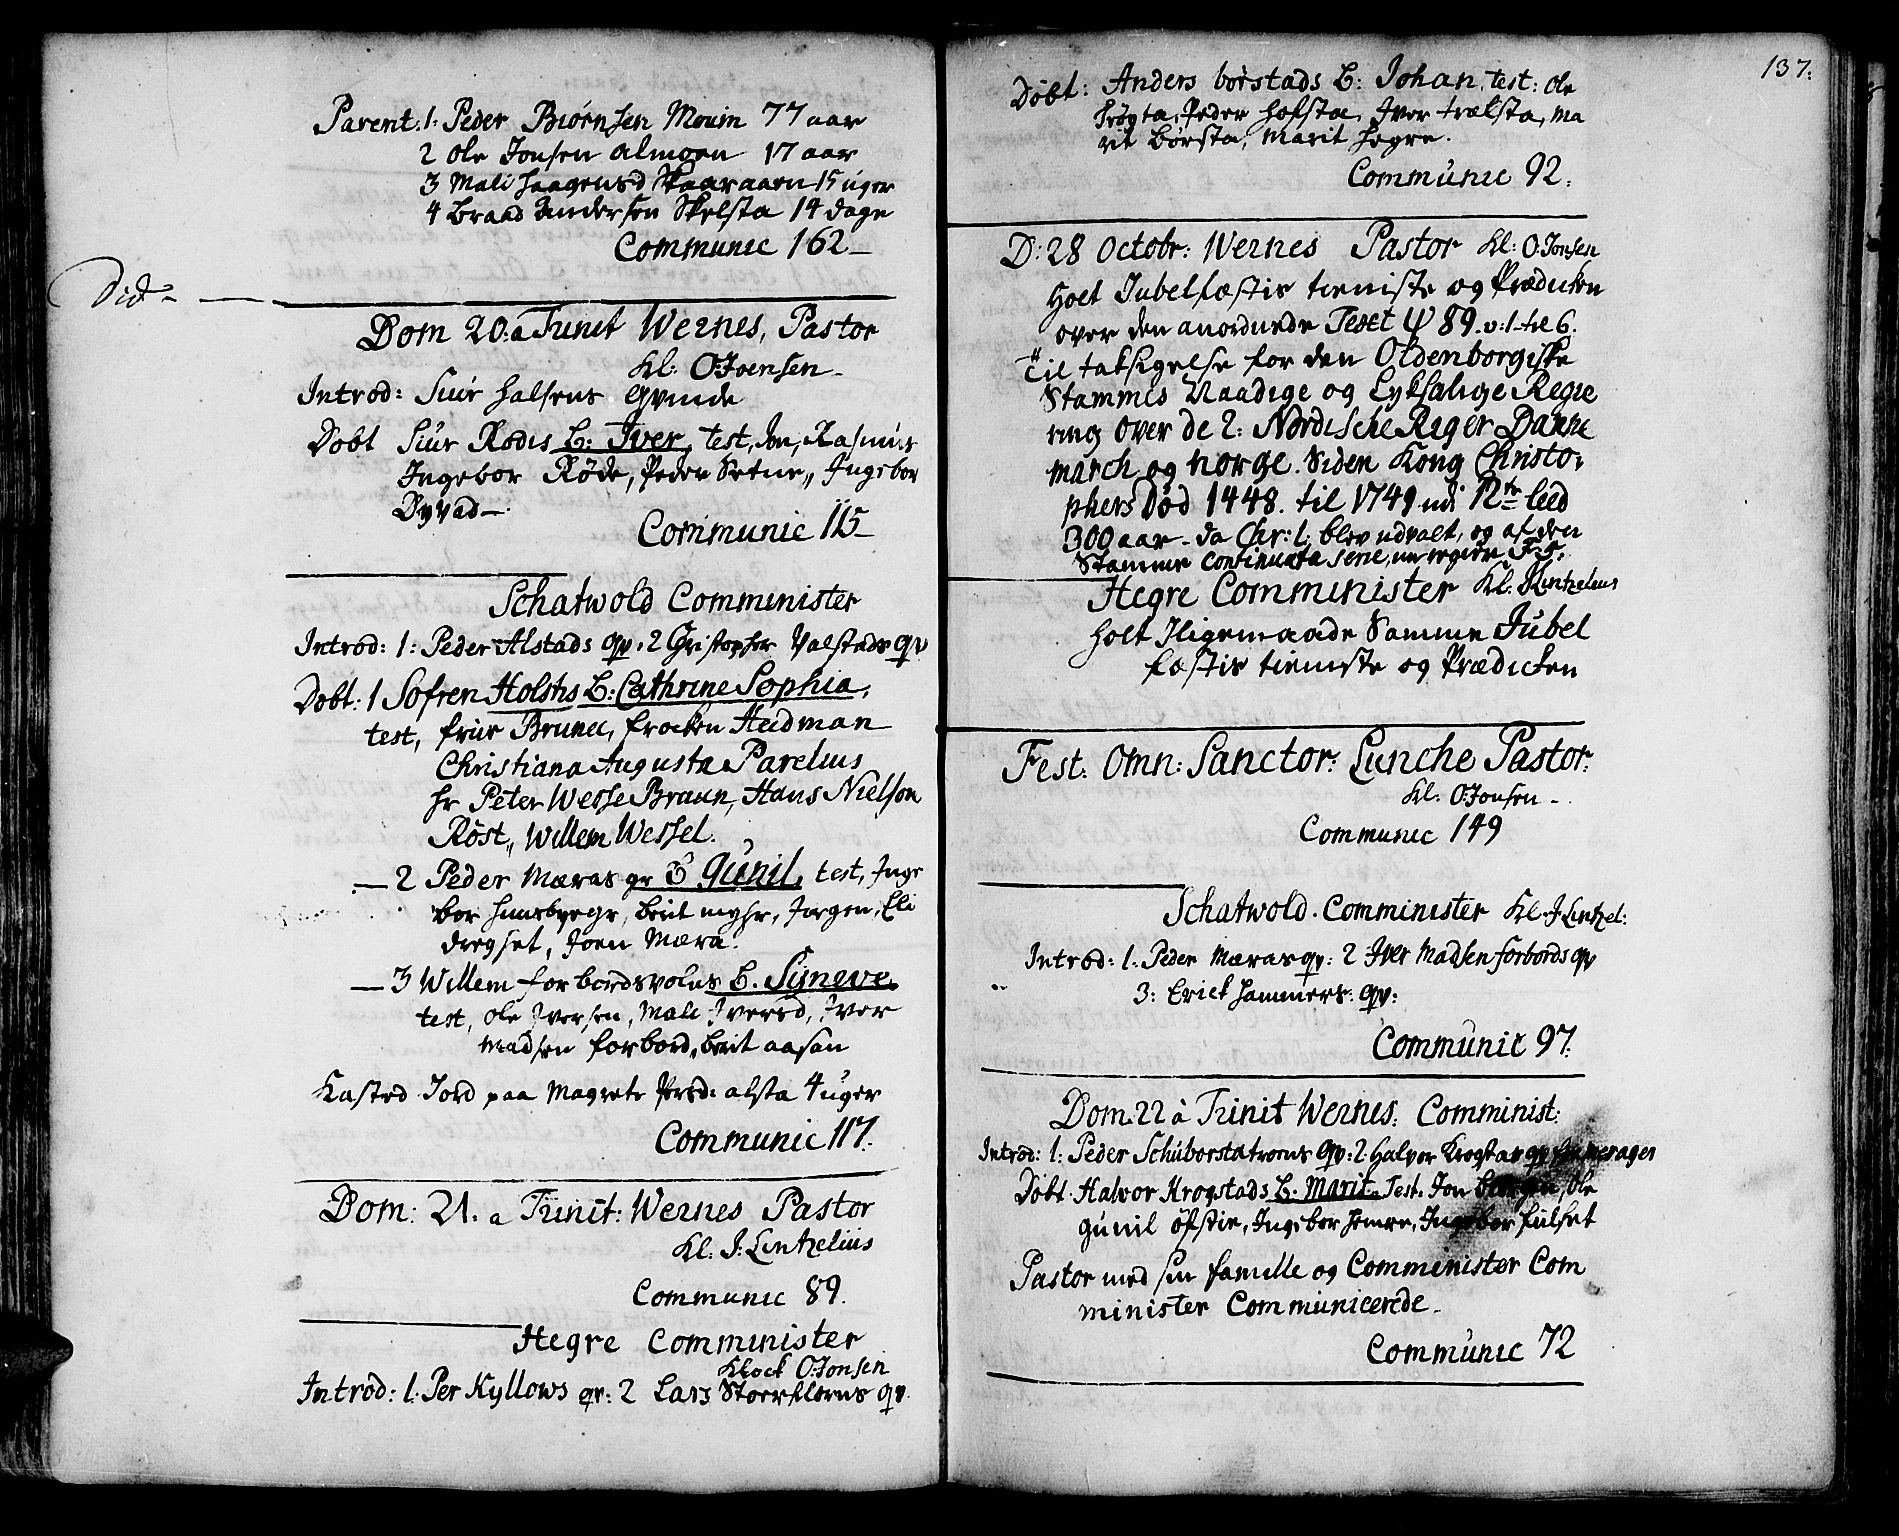 Parent: 1: Peder Biørnsen Moum 77 aar
2 Ole Jonsen almoen 17 aar
3 Mali Haagensd Skaaraaen 15 uger
4 Braad Andersen Skelsta 14 dage
Communic 162
Did -
Dom 20: a Trinit Wernes, Pastor
Kl: O: Joensen
Introd: Siur Halsens qvinde
Døbt Siur Rødis B: Iver, test, Jon, Rasmus
Ingebor Røde, Peder Setne, Ingebor
Byvad
Communic 115
Schatwold Comminister
Introd: 1: Peder Alstads qv: 2 Christopher Valstads qv
Døbt: 1 Sofren Holstis B: Cathrine Sophia,
test, frue Brunee, frøcken Heidman
Christiana Augusta Parelius
Hr Peter Wesse Braun, Hans Nielsen
Röst, Willem Wessel.
2 Peder Mæras gr B Gunil, test, Inge
bor Huusbyegr, berit myhr, Jørgen, Eli
Dregset, Joen Mæra.
3 Willem forbordsvolns B. Syneve.
test, Ole Iversen, Mali Iversd, Iver
Madsen forbord, berit aasan
Kasted Jord paa Magrete Persd: alsta 4 uger
Communic 117.
Dom: 21. a Trinit: Wernes Pastor
Kl: J: Lintzelius
Communic 89.
Hegre Comminister
Klock O: Jonsen
Introd: 1: Per Kyllows qv: 2 Lars qv
137:
Døbt: Anders börstads B: Johan, test: Ole
Peder Hofsta, Iver trælsta, Ma
rit Børsta, Marit Hegre.
Communic 92.
D: 28 Octobr: Wernes Pastor Kl: O: Jonsen
Holt Jubelfæstis tieniste og Prædicken
over den anordnede Text ψ 89. v: 1 til 6.
Til taksigelse for den Oldenborgiske
Stammes Naadige og Lyksalige Regie
ring over de 2: Nordische Riger Danne
march og Norge. Siden Kong Christo:
phers Død 1448. til 1749 udi 12te Leed
300 aar - da Chr: 1: blev udvalt, og af den
Stamme continuata serie, nu regierer F: 5.
Hegre Comminister Kl: Lintzelius
Holt Iligemaade Samme Jubel
fæstis tieniste og Prædicken
Fest: Omn: Sanctor: Lünche Pastor:
Kl: O: Jonsen
Communic 149
Schatwold. Comminister Kl: J Lintzel:
Introd: 1: Peder Mæras qv: 2 Iver Madsen forbords qv
3: Erick Hammers: qv:
Communic 97.
Dom: 22 à Trinit Wernes: Comminist:
Introd: 1: Peder Schüborstatrøens qv: 2 Halvor Krogstas qv
Døbt Halvor Krogstads B. Marit. Test. Jon Ole
Gunil öfstie, Ingebor Hemre, Ingebor fulset
Pastor med sin familie og Comminister Com
minister Communicerede.
Communic 72